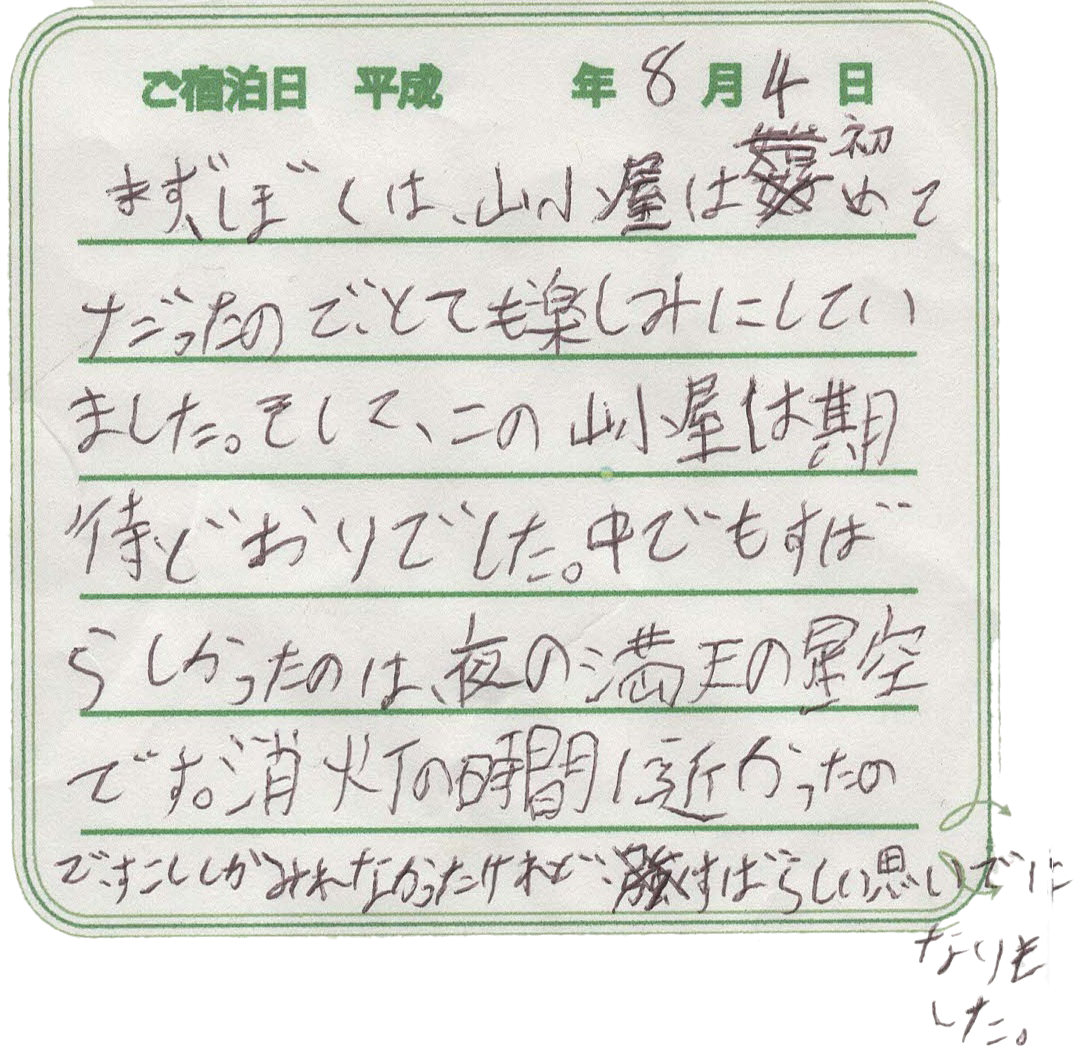 ご宿泊日 平成 年 8 月 4 日
まず、ぼくは、山小屋は初めて
だったので、とても楽しみにしてい
ました。そして、この山小屋は期
待どおりでした。中でもすば
らしかったのは、夜の満天の星空
です。消火灯の時間に近かったの
で、すこししかみれなかったけれど、すばらしい思いでに
なりま
した。